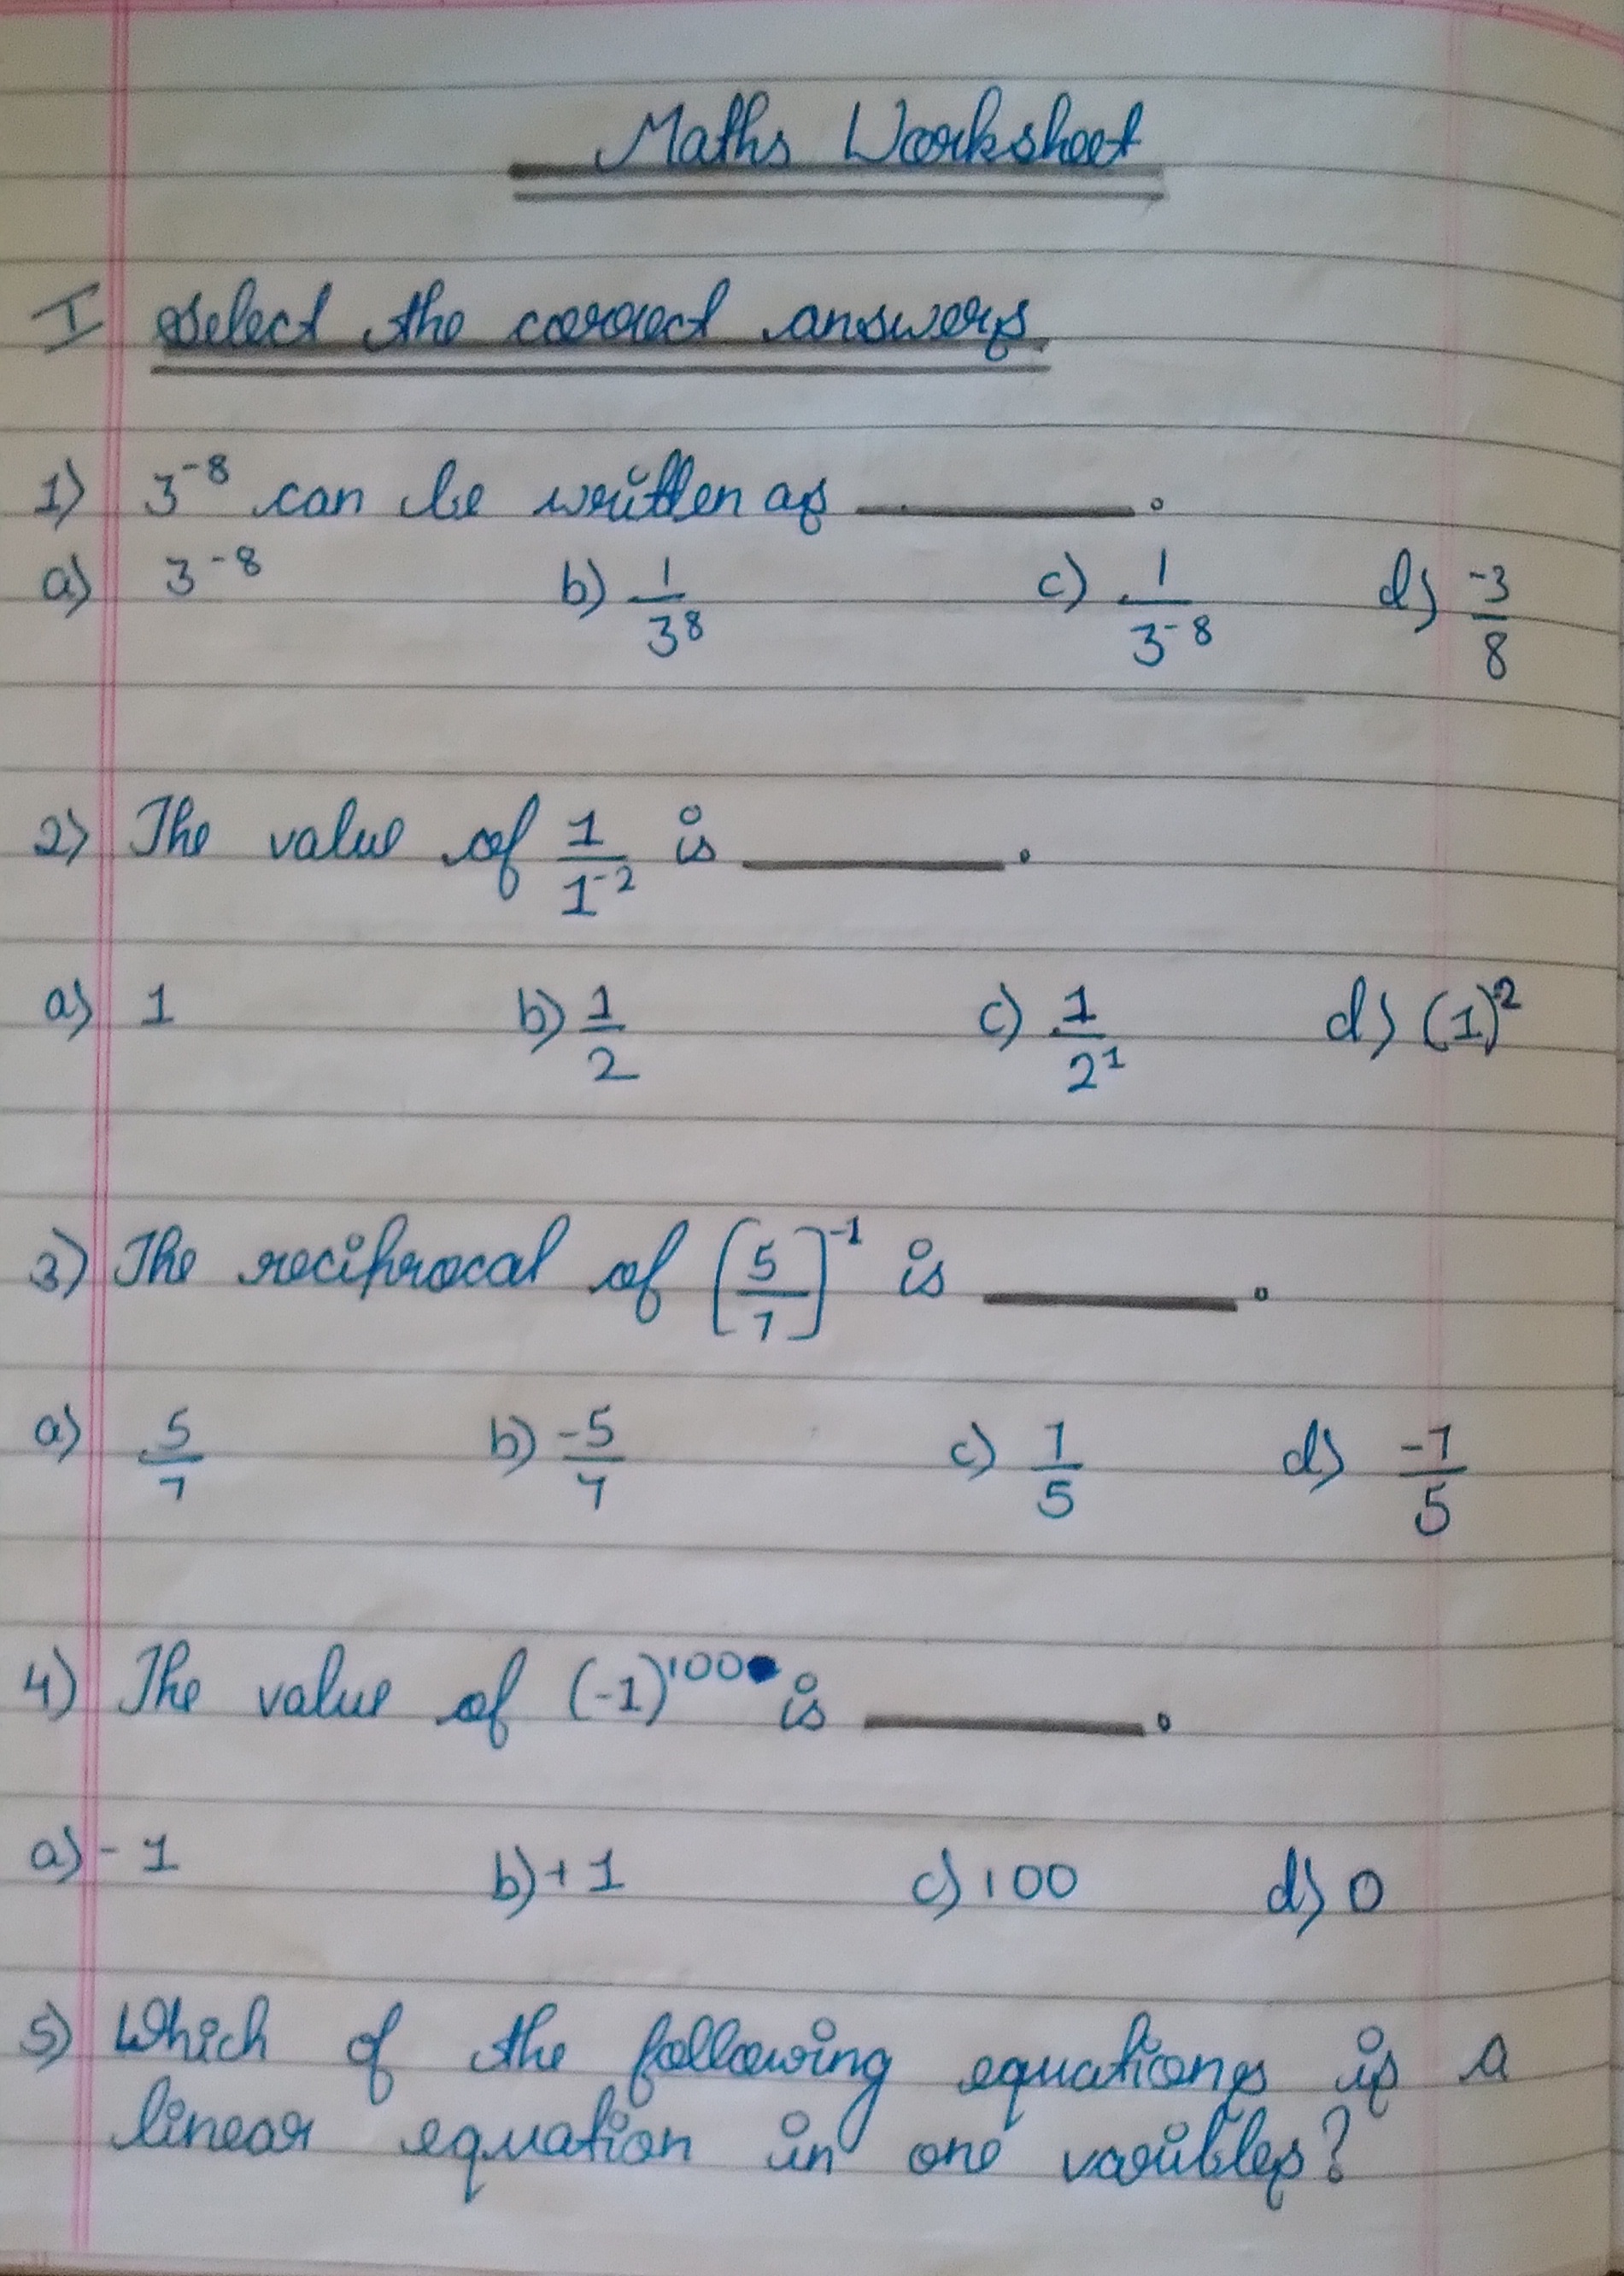 Maths Worksheet
I Select the correct answers
1) 3⁻⁸ can be written as ________.
a) 3⁻⁸ b) 1/3⁸ c) 1/3⁻⁸ d) -3/8
2) The value of 1/1⁻² is ________.
a) 1 b) 1/2 c) 1/2¹ d) (1)²
3) The reciprocal of [5/7]⁻¹ is ________.
a) 5/7 b) -5/7 c) 7/5 d) -7/5
4) The value of (-1)¹⁰⁰ is ________.
a) -1 b) +1 c) 100 d) 0
5) Which of the following equations is a
linear equation in one varibles?